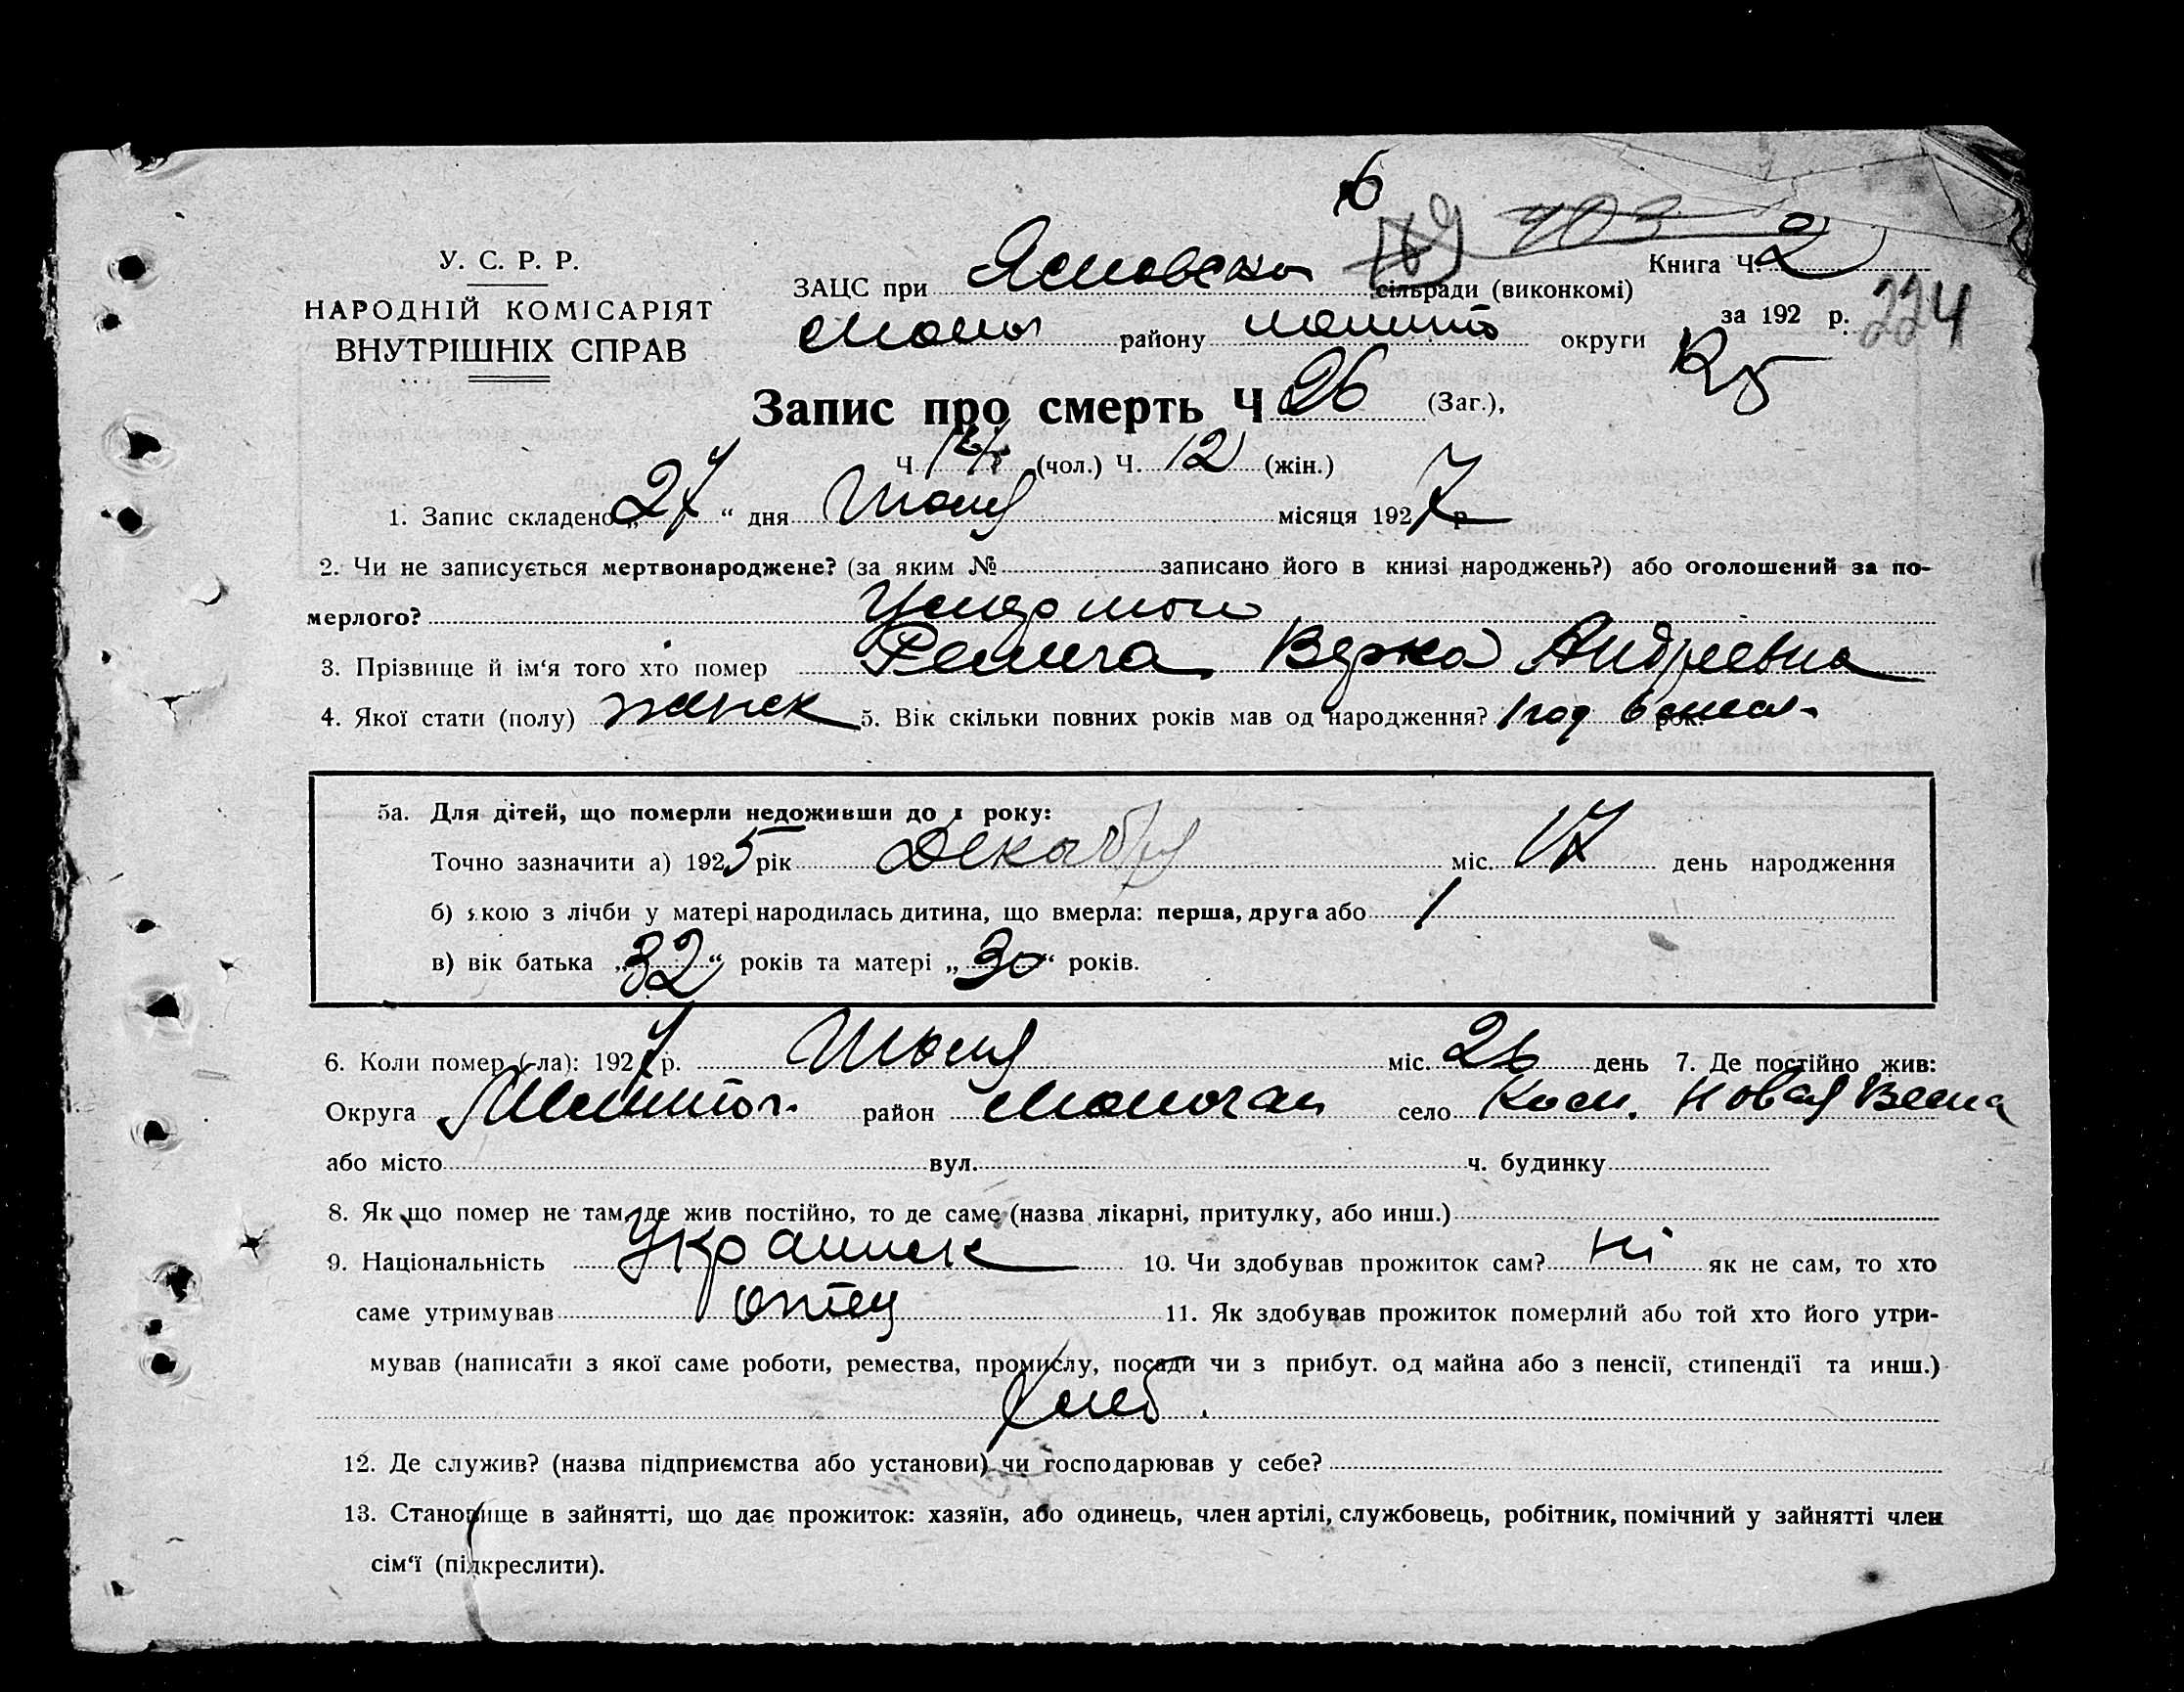 6
769 403
У. С. Р. Р.
НАРОДНІЙ КОМІСАРІЯТ
ВНУТРІШНІХ СПРАВ
ЗАЦС при сільради (виконкомі)
Книга Ч. 2
району округи
за 192 р. 224
Запис про смерть Ч 26 (Заг.),
Ч 14 (чол.) Ч. 12 (жін.)
1. Запис складено „27“ дня Июня місяця 1927 р
2. Чи не записується мертвонароджене? (за яким № записано його в книзі народжень?) або оголошений за по-
мерлого?
3. Прізвище й ім‘я того хто помер Верка Андреевна
4. Якої стати (полу) женск 5. Вік скільки повних років мав од народження? 1 год 6 рок.
5а. Для дітей, що померли недоживши до 1 року:
Точно зазначити а) 1925 рік Декабря міс. 17 день народження
б) якою з лічби у матері народилась дитина, що вмерла: перша, друга або 1
в) вік батька „32“ років та матері „30“ років.
6. Коли помер (-ла): 1927 р. Июня міс. 26 день 7. Де постійно жив:
Округа район село Новая Весна
або місто вул. ч. будинку
8. Як що помер не там, де жив постійно, то де саме (назва лікарні, притулку, або инш.)
9. Національність Украинск 10. Чи здобував прожиток сам? Ні як не сам, то хто
саме утримував отец 11. Як здобував прожиток померлий або той хто його утри-
мував (написати з якої саме роботи, ремества, промислу, посади чи з прибут. од майна або з пенсії, стипендії та инш.)
Хлеб.
12. Де служив? (назва підприємства або установи) чи господарював у себе?
13. Становище в зайнятті, що дає прожиток: хазяїн, або одинець, член артілі, службовець, робітник, помічний у зайнятті член
сім‘ї (підкреслити).